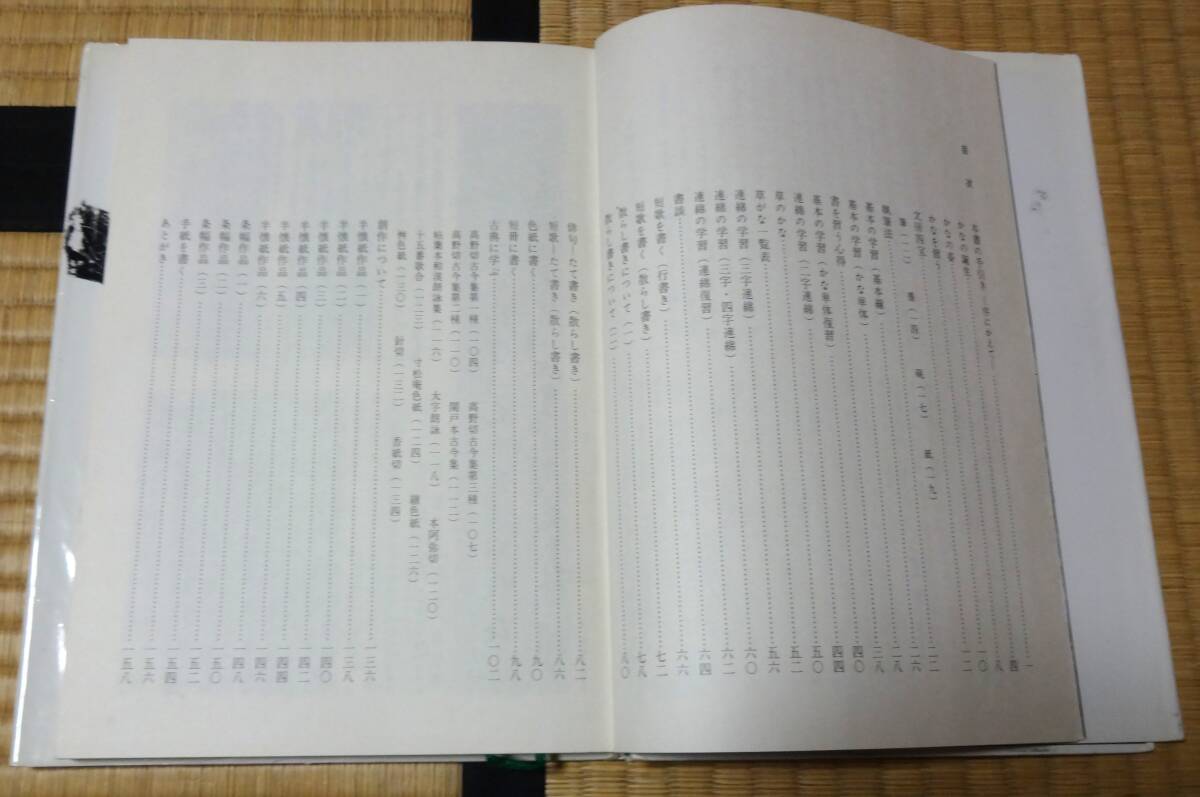 目次
本書の手引き（序にかえて）……一
かなの誕生……四
かなの姿……八
かなを習う……一〇
文房四宝……一二
筆（一二）　墨（一四）　硯（一七）　紙（一九）
執筆法……二二
基本の学習（基本線）……二八
基本の学習（かな単体）……三八
書を習う心得……四〇
基本の学習（かな単体復習）……四四
連綿の学習（二字連綿）……五〇
草のかな……五二
草がな一覧表……五六
連綿の学習（三字連綿）……六〇
連綿の学習（三字・四字連綿）……六二
連綿の学習（連綿復習）……六四
書談……六六
短歌を書く（行書き）……七二
短歌を書く（散らし書き）……七八
散らし書きについて（一）……八〇
散らし書きについて（二）
俳句・たて書き（散らし書き）……八二
短歌・たて書き（散らし書き）……八六
色紙に書く……九〇
短冊に書く……九八
古典に学ぶ……一〇二
高野切古今集第一種（一〇四）　高野切古今集第三種（一〇七）
高野切古今集第二種（一一〇）　関戸本古今集（一一二）
粘葉本和漢朗詠集（一一六）　太字朗詠（一一八）　本阿弥切（一二〇）
十五番歌合（一二二）　寸松庵色紙（一二四）　継色紙（一二六）
升色紙（一三〇）　針切（一三二）　香紙切（一三四）
創作について……一三六
半懐紙作品（一）……一三八
半懐紙作品（二）……一四〇
半懐紙作品（三）……一四二
半懐紙作品（四）……一四四
半懐紙作品（五）……一四六
半懐紙作品（六）……一四八
条幅作品（一）……一五〇
条幅作品（二）……一五二
条幅作品（三）……一五四
手紙を書く……一五六
あとがき……一五八